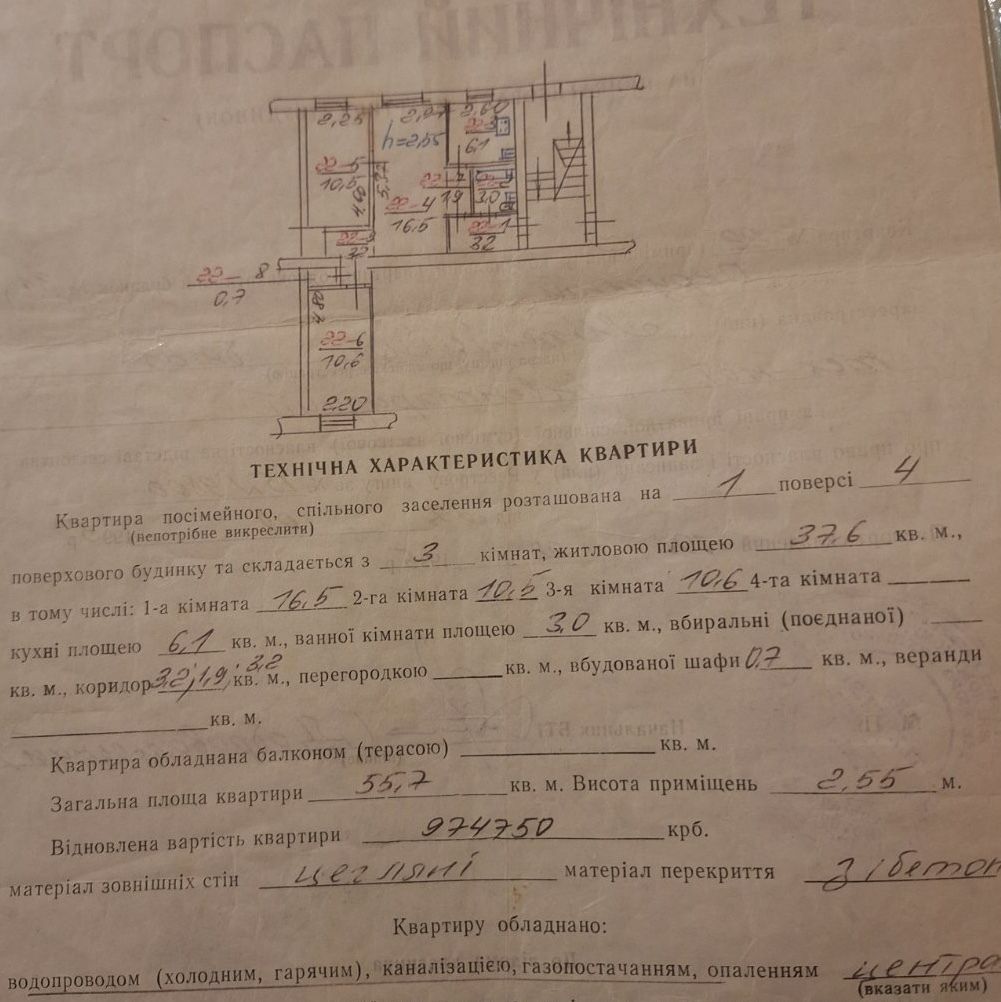 ТЕХНІЧНИЙ ПАСПОРТ
2,25 2,97 2,60
h=2,55
22-3
6,1
22-5
10,5
22-7
1,9
3,0
5,57
4,69
22-4
16,5
22-1
3,2
3,2
22-8
0,7
4,82
22-6
10,6
2,20
ТЕХНІЧНА ХАРАКТЕРИСТИКА КВАРТИРИ
Квартира посімейного, спільного заселення розташована на 1 поверсі 4
(непотрібне викреслити)
поверхового будинку та складається з 3 кімнат, житловою площею 37,6 кв. м.,
в тому числі: 1-а кімната 16,5 2-га кімната 10,5 3-я кімната 10,6 4-та кімната
кухні площею 6,1 кв. м., ванної кімнати площею 3,0 кв. м., вбиральні (поєднаної)
кв. м., коридор 3,2; 1,9; 3,2 кв. м., перегородкою кв. м., вбудованої шафи 0,7 кв. м., веранди
кв. м.
Квартира обладнана балконом (терасою) кв. м.
Загальна площа квартири 55,7 кв. м. Висота приміщень 2,55 м.
Відновлена вартість квартири 974750 крб.
матеріал зовнішніх стін цегляні матеріал перекриття з/бетон
Квартиру обладнано:
водопроводом (холодним, гарячим), каналізацією, газопостачанням, опаленням центра
(вказати яким)